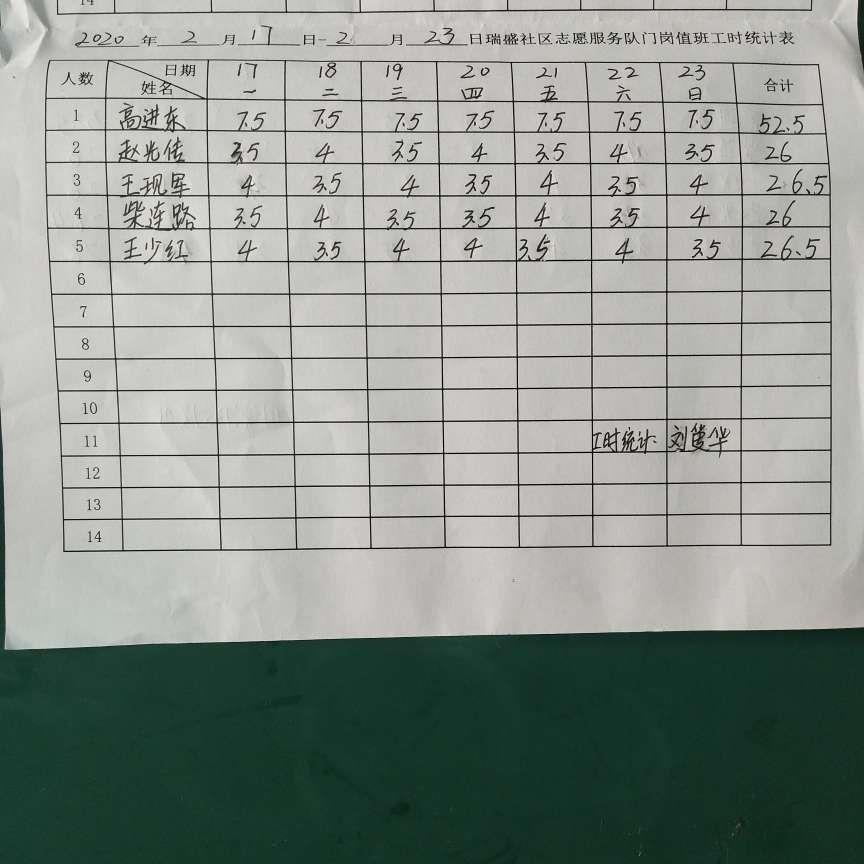 14
2020 年 2 月 17 日-2 月 23 日瑞盛社区志愿服务队门岗值班工时统计表
人数 日期 姓名 17 一 18 二 19 三 20 四 21 五 22 六 23 日 合计
1 高进东 7.5 7.5 7.5 7.5 7.5 7.5 7.5 52.5
2 赵光传 3.5 4 3.5 4 3.5 4 3.5 26
3 王现军 4 3.5 4 3.5 4 3.5 4 26.5
4 柴连路 3.5 4 3.5 3.5 4 3.5 4 26
5 王少红 4 3.5 4 4 3.5 4 3.5 26.5
6
7
8
9
10
11 工时统计: 刘 华
12
13
14